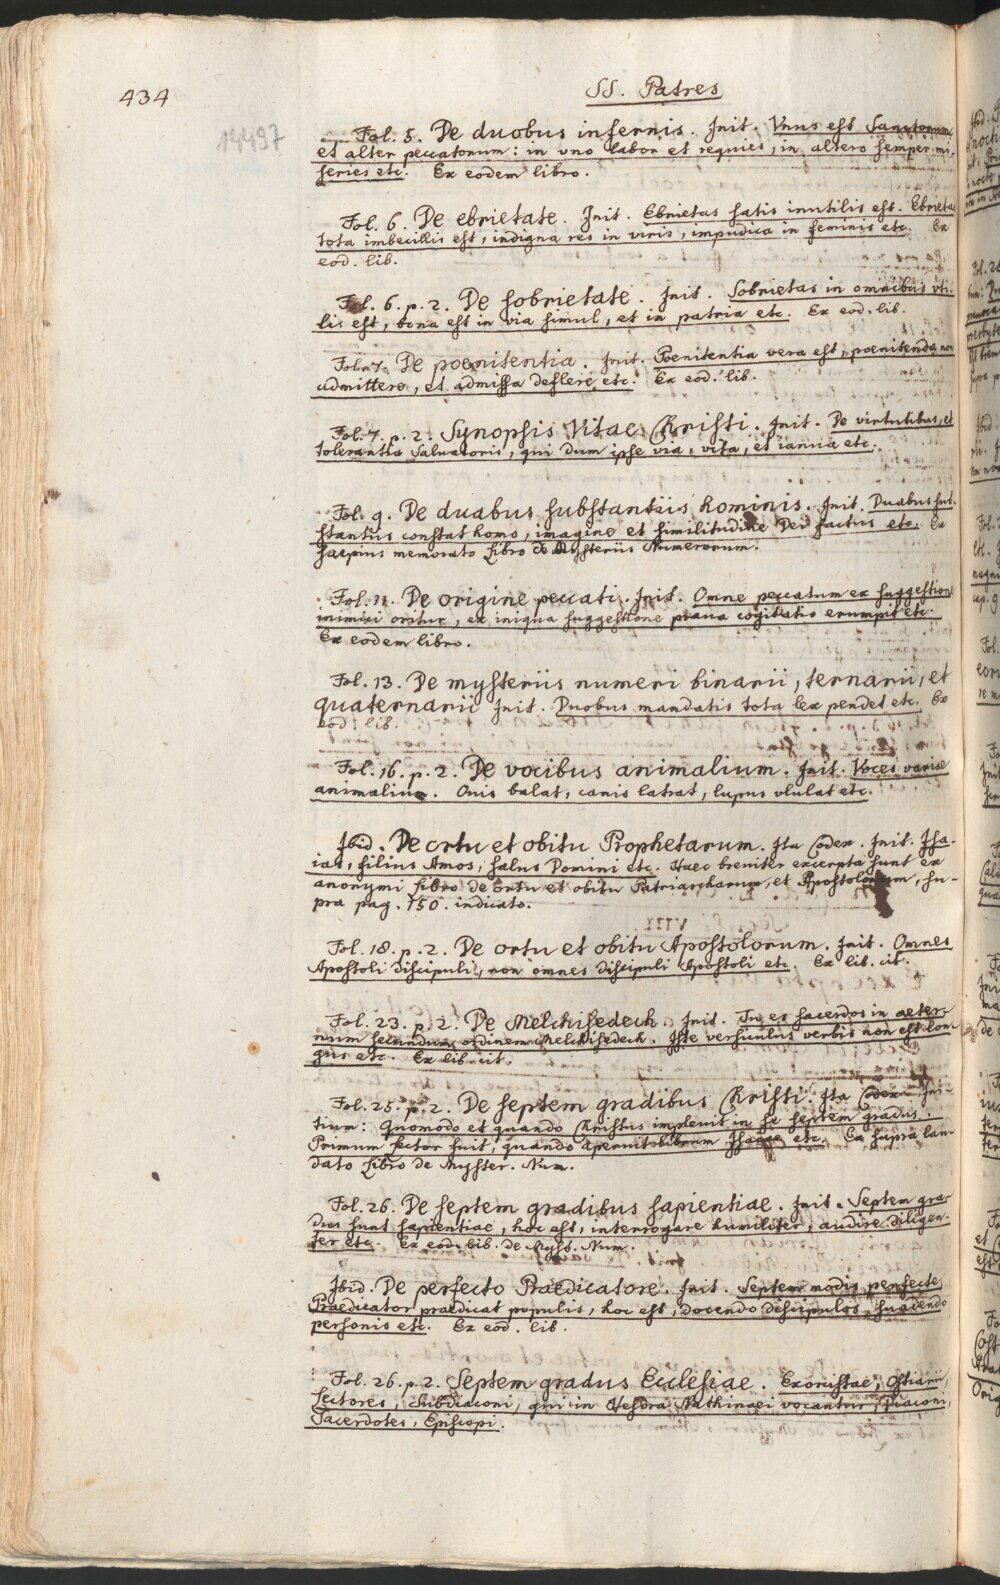 434
SS. Patres
14497
Fol. 5. De duobus infernis. Init. Vnus est Sanctorum
et alter peccatorum: in vno labor et requies, in altero semper mi-
series etc. Ex eodem libro.
Fol. 6. De ebrietate. Init. Ebrietas satis inutilis est. Ebrietas
tota imbecillis est, indigna res in viris, impudica in feminis etc. Ex
eod. lib.
Fol. 6. p. 2. De sobrietate. Init. Sobrietas in omnibus vti-
lis est, bona est in via simul, et in patria etc. Ex eod. lib.
Fol. 7. De poenitentia. Init. Poenitentia vera est, poenitenda non
admittere, et admissa deflere etc. Ex eod. lib.
Fol. 7. p. 2. Synopsis Vitae Christi. Init. De virtutibus, et
tolerantia Salvatoris, qui dum ipse via, vita, et ianua etc.
Fol. 9. De duabus substantiis hominis. Init. Duabus sub-
stantiis constat homo, imagine et similitudine Dei factus etc. Ex
saepius memorato Libro de Mysteriis Numerorum.
Fol. 11. De origine peccati. Init. Omne peccatum ex suggestione
inimici oritur, ex iniqua suggestione praua cogitatio erumpit etc.
Ex eodem libro.
Fol. 13. De mysteriis numeri binarii, ternarii, et
quaternarii Init. Duobus mandatis tota lex pendet etc. Ex
eod. lib.
Fol. 16. p. 2. De vocibus animalium. Init. Voces variae
animalium. Ouis balat, canis latrat, lupus vlulat etc.
Ibid. De ortu et obitu Prophetarum. Ita Codex. Init. Isa-
ias, filius Amos, salus Domini etc. Haec breviter excerpta sunt ex
anonymi libro de ortu et obitu Patriarcharum, et Apostolorum, su-
pra pag. 150. indicato.
Fol. 18. p. 2. De ortu et obitu Apostolorum. Init. Omnes
Apostoli discipuli, non omnes discipuli Apostoli etc. Ex lib. cit.
Fol. 23. p. 2. De Melchisedech. Init. Tu es sacerdos in aeter-
num secundum ordinem Melchisedech. Iste versiculus verbis non est lon-
gus etc. Ex lib. cit.
Fol. 25. p. 2. De septem gradibus Christi. Ita Codex. Ini-
tium: Quomodo et quando Christus implevit in se septem gradus.
Primum Lector fuit, quando aperuit librum Isaiae etc. Ex supra lau-
dato Libro de Myster. Num.
Fol. 26. De septem gradibus sapientiae. Init. Septem gra-
dus sunt sapientiae, hoc est, interrogare humiliter, audire diligen-
ter etc. Ex eod. lib. de Myst. Num.
Ibid. De perfecto Praedicatore. Init. Septem modis perfecte
Praedicator praedicat populis, hoc est, docendo discipulos, suadendo
personis etc. Ex eod. lib.
Fol. 26. p. 2. Septem gradus Ecclesiae. Exorcistae, Ostiarii,
Lectores, Subdiaconi, qui in Hesdra Nathinaei vocantur, Diaconi,
Sacerdotes, Episcopi.